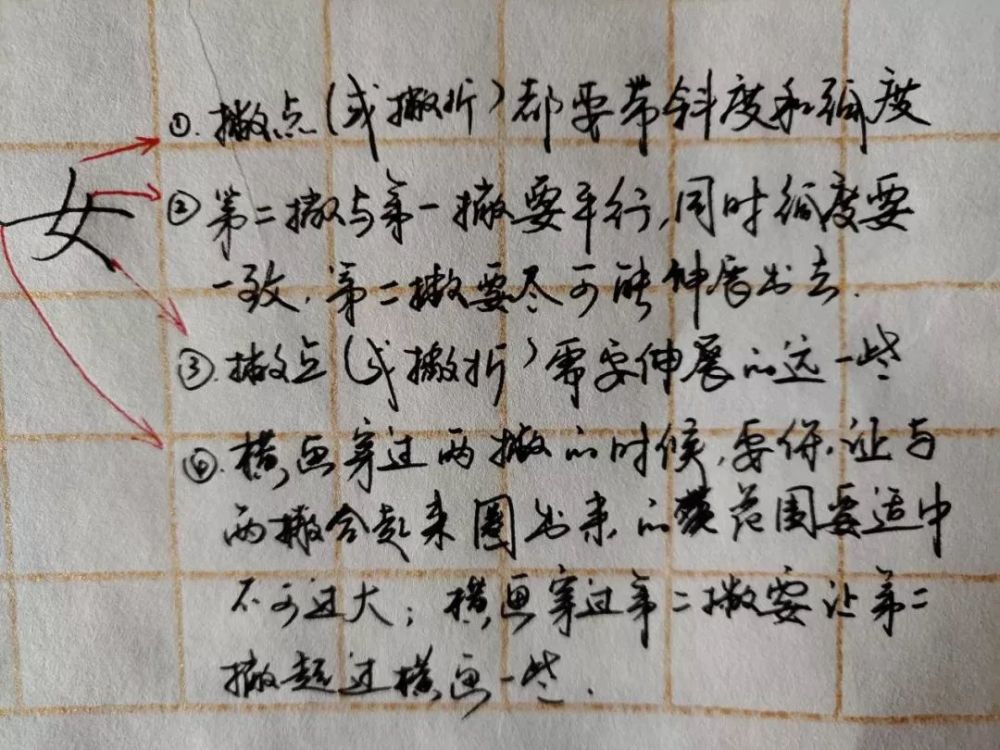 女
①.撇点(或撇折)都要带斜度和弧度
②第二撇与第一撇要平行,同时弧度要
一致.第二撇要尽可能伸展出去.
③.撇点(或撇折)需要伸展的远一些
④.横画穿过两撇的时候,要保证与
两撇合起来圈出来的范围要适中
不可过大;横画穿过第二撇要让第二
撇超过横画一些.